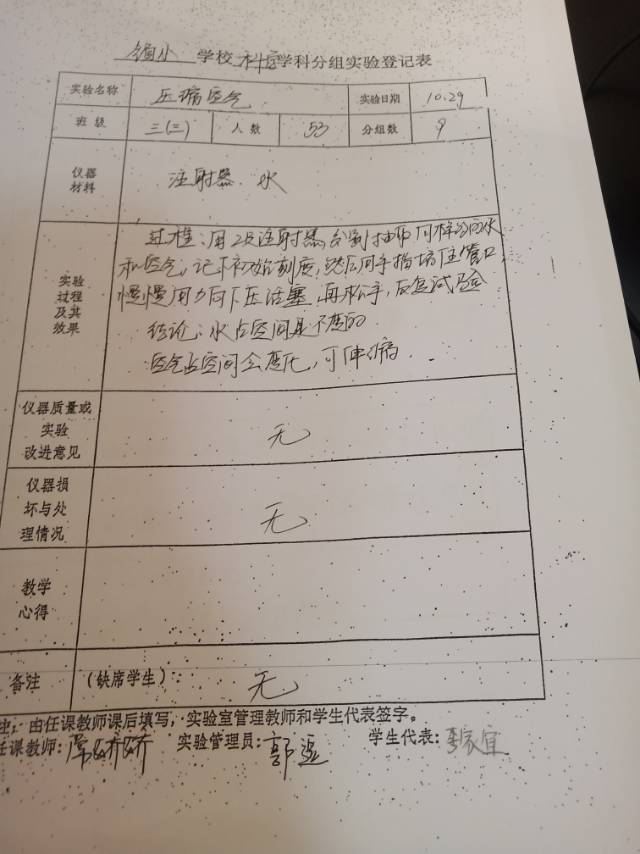 学校 科学 学科分组实验登记表
实验名称 压缩空气 实验日期 10.29
班级 三(二) 人数 53 分组数 9
仪器材料 注射器 水
实验过程及其效果
过程:用2段注射器,分别抽取同样多的水
和空气,记下初始刻度,然后用手指堵住管口,
慢慢用力向下压活塞,再松手,反复试验
结论:水占空间是不变的
空气占空间会变化,可伸缩.
仪器质量或实验改进意见 无
仪器损坏与处理情况 无
教学心得
备注 (缺席学生): 无
由任课教师课后填写,实验室管理教师和学生代表签字。
任课教师: 常娇娇 实验管理员: 郭 学生代表: 家宜